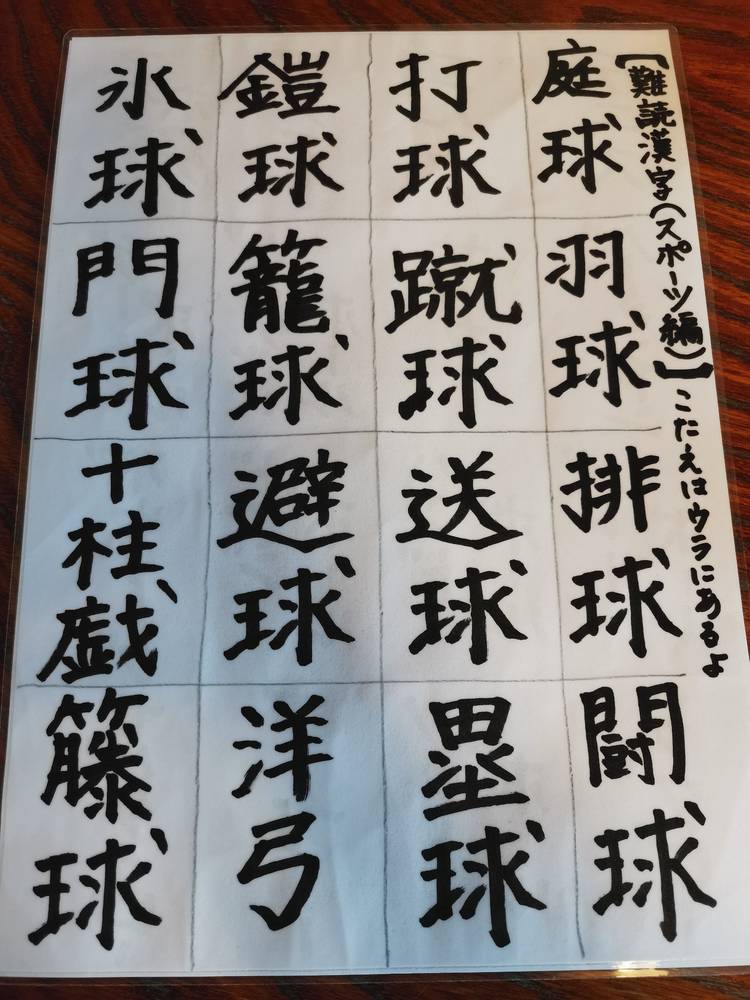 【難読漢字(スポーツ編)】こたえはウラにあるよ
庭球
羽球
排球
闘球
打球
蹴球
送球
塁球
鎧球
籠球
避球
洋弓
氷球
門球
十柱戯
籐球